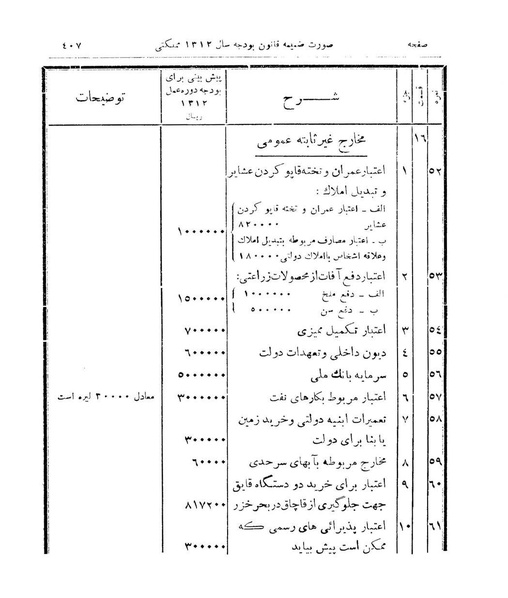 صفحه صورت ضمیمه قانون بودجه سال ۱۳۱۲ مملکتی ۴۰۷
نمره قسمت جزء شـــرح پیش بینی برای بودجه دوره عمل ۱۳۱۲ ریال توضیحات
۱۶ مخارج غیر ثابته عمومی
۵۲ ۱ اعتبار عمران و تخته قاپو کردن عشایر
و تبدیل املاک :
الف ـ اعتبار عمران و تخته قاپو کردن
عشایر ۸۲۰۰۰۰
ب ـ اعتبار مصارف مربوطه بتبدیل املاک
وعلاقه اشخاص باملاک دولتی ۱۸۰۰۰۰ ۱۰۰۰۰۰۰
۵۳ ۲ اعتبار دفع آفات از محصولات زراعتی:
الف ـ دفع ملخ ۱۰۰۰۰۰۰
ب ـ دفع سن ۵۰۰۰۰۰ ۱۵۰۰۰۰۰
۵۴ ۳ اعتبار تکمیل ممیزی ۷۰۰۰۰۰
۵۵ ۴ دیون داخلی و تعهدات دولت ۶۰۰۰۰۰
۵۶ ۵ سرمایه بانک ملی ۵۰۰۰۰۰۰
۵۷ ۶ اعتبار مربوط بکارهای نفت ۳۰۰۰۰۰۰ معادل ۳۰۰۰۰ لیره است
۵۸ ۷ تعمیرات ابنیه دولتی وخرید زمین
یا بنا برای دولت ۳۰۰۰۰۰
۵۹ ۸ مخارج مربوطه بآبهای سرحدی ۶۰۰۰۰
۶۰ ۹ اعتبار برای خرید دو دستگاه قایق
جهت جلوگیری از قاچاق در بحر خزر ۸۱۷۲۰۰
۶۱ ۱۰ اعتبار پذیرائی های رسمی که
ممکن است پیش بیاید ۳۰۰۰۰۰